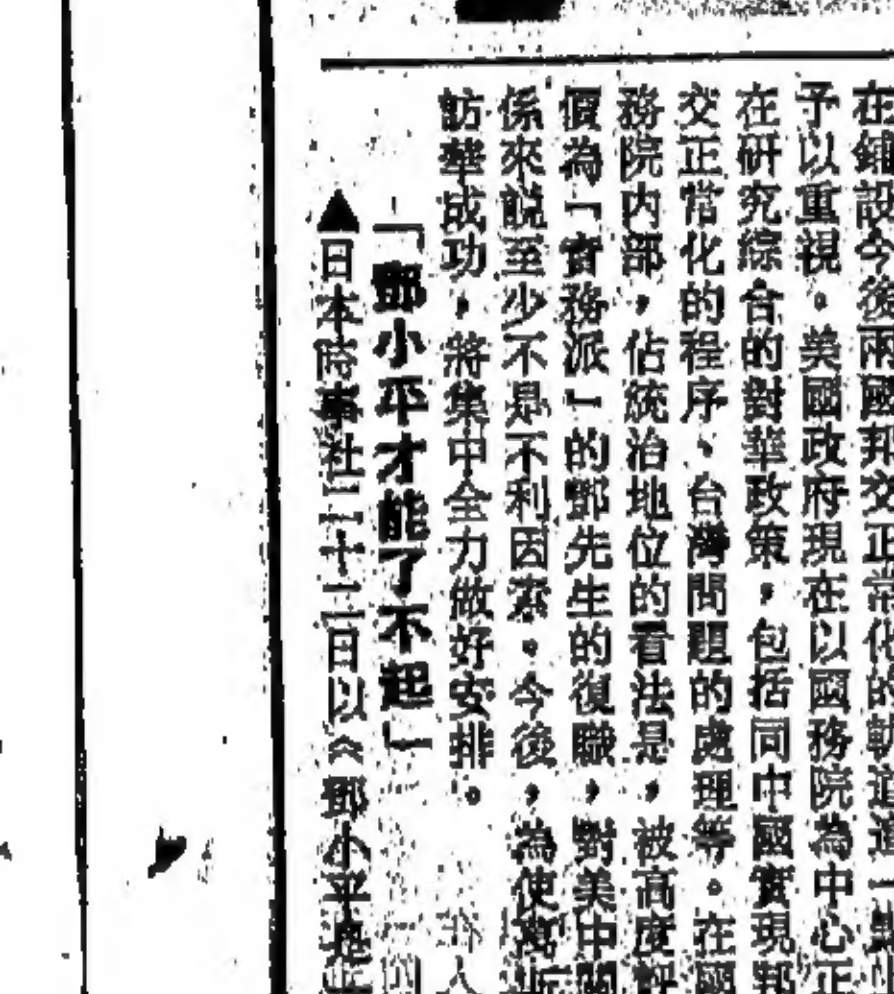 在鋪設今後兩國邦交正常化的軌道這一點上
予以重視。美國政府現在以國務院為中心正
在研究綜合的對華政策,包括同中國實現邦
交正常化的程序、台灣問題的處理等。在國
務院内部,佔統治地位的看法是,被高度評
價為「實務派」的鄧先生的復職,對美中關
係來說至少不是不利因素。今後,為使萬斯
訪華成功,將集中全力做好安排。
「鄧小平才能了不起」
▲日本時事社二十二日以《鄧小平是